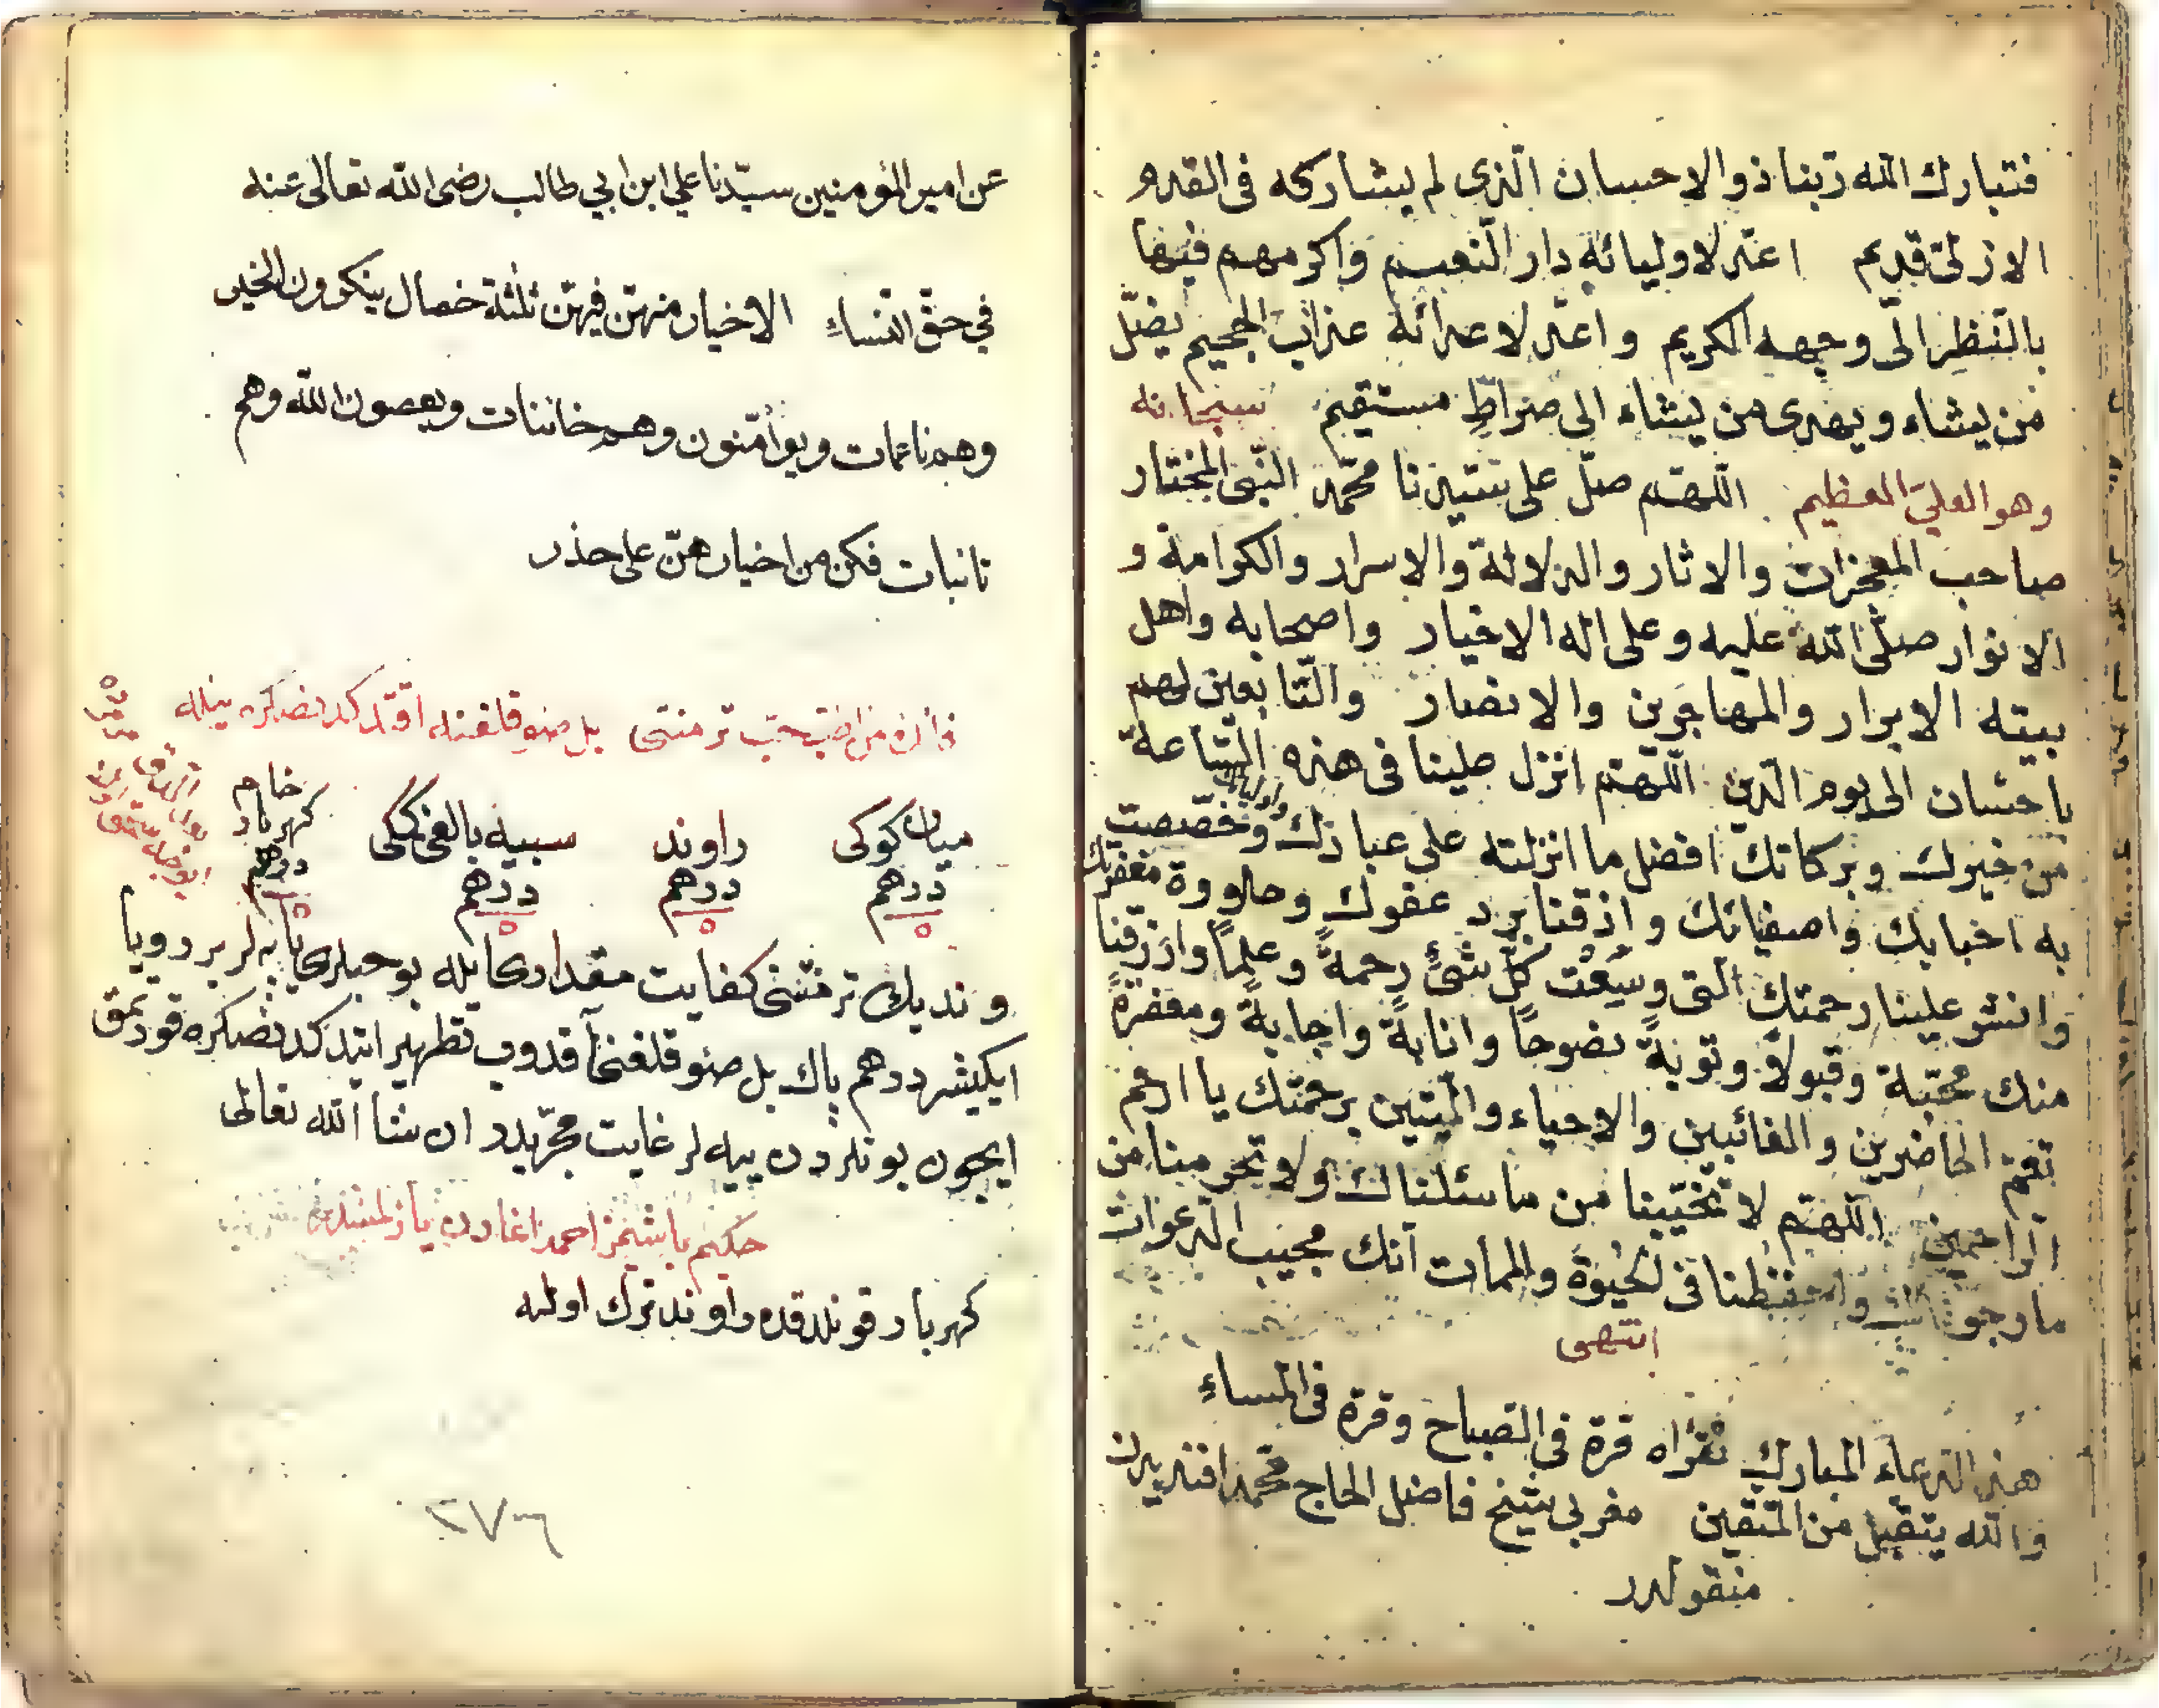 فتبارك الله ربنا ذو الاحسان الذي لم يشاركه فى القدم
الازلى قديم اعد لاوليائه دار النعيم واكرمهم فيها
بالنظر الى وجهه الكريم واعد لاعدائه عذاب الجحيم يضل
من يشاء ويهدى من يشاء الى صراط مستقيم سبحانه
وهو العلي العظيم اللهم صل على سيدنا محمد النبى المختار
صاحب المعجزات والاثار والدلالة والاسرار والكرامة و
الانوار صلى الله عليه وعلى اله الاخيار واصحابه واهل
بيته الابرار والمهاجرين والانصار والتابعين لهم
باحسان الى يوم الدين اللهم انزل علينا فى هذه الساعة
من خيرك وبركاتك افضل ما انزلته على عبادك واوليائك وخصصت
به احبابك واصفيائك واذقنا برد عفوك وحلاوة مغفرتك
وانشر علينا رحمتك التى وسعت كل شئ رحمة وعلما وارزقنا
منك محبة وقبولا وتوبة نصوحا وانابة واجابة ومغفرة
تعم الحاضرين والغائبين والاحياء والميتين برحمتك يا ارحم
الراحمين اللهم لا تخيبنا من ما سئلناك ولا تحرمنا من
ما رجوناك واحفظنا فى لحيوة والممات انك مجيب الدعوات
انتهى
هذا الدعاء المبارك تقراه مرة فى الصباح ومرة فى المساء
والله يتقبل من المتقين مغربى شيخ فاضل الحاج محمد افنديدن
منقولدر
عن امير المؤمنين سيدنا علي ابن ابي طالب رضى الله تعالى عنه
في حق النساء الاخيار منهن فيهن ثلثة خصال ينكرون الخير
وهم ناعمات ويوامنون وهم خائنات ويعصون الله وهم
تائبات فكن من اخيارهن على حذر
حب ترمنتى بل صوقلغنه
ميان كوكى راوند سبيه خام كهربار
درهم درهم درهم درهم
٥ ٥ ٥ ٥
وندیك ترمنتى كفايت مقدارى ايله بو حبلرى ياپهلر بر دويا
ايكيشر درهم پاك بل صوقلغن قدوب تطهير ايتدكدنصكره قورتمق
ايچون بونلردن ييه لر غايت مجربدر ان شا الله تعالى
حكيم باشيمز احمد اغادن
كهربار قوندقده راوند ترك اوله